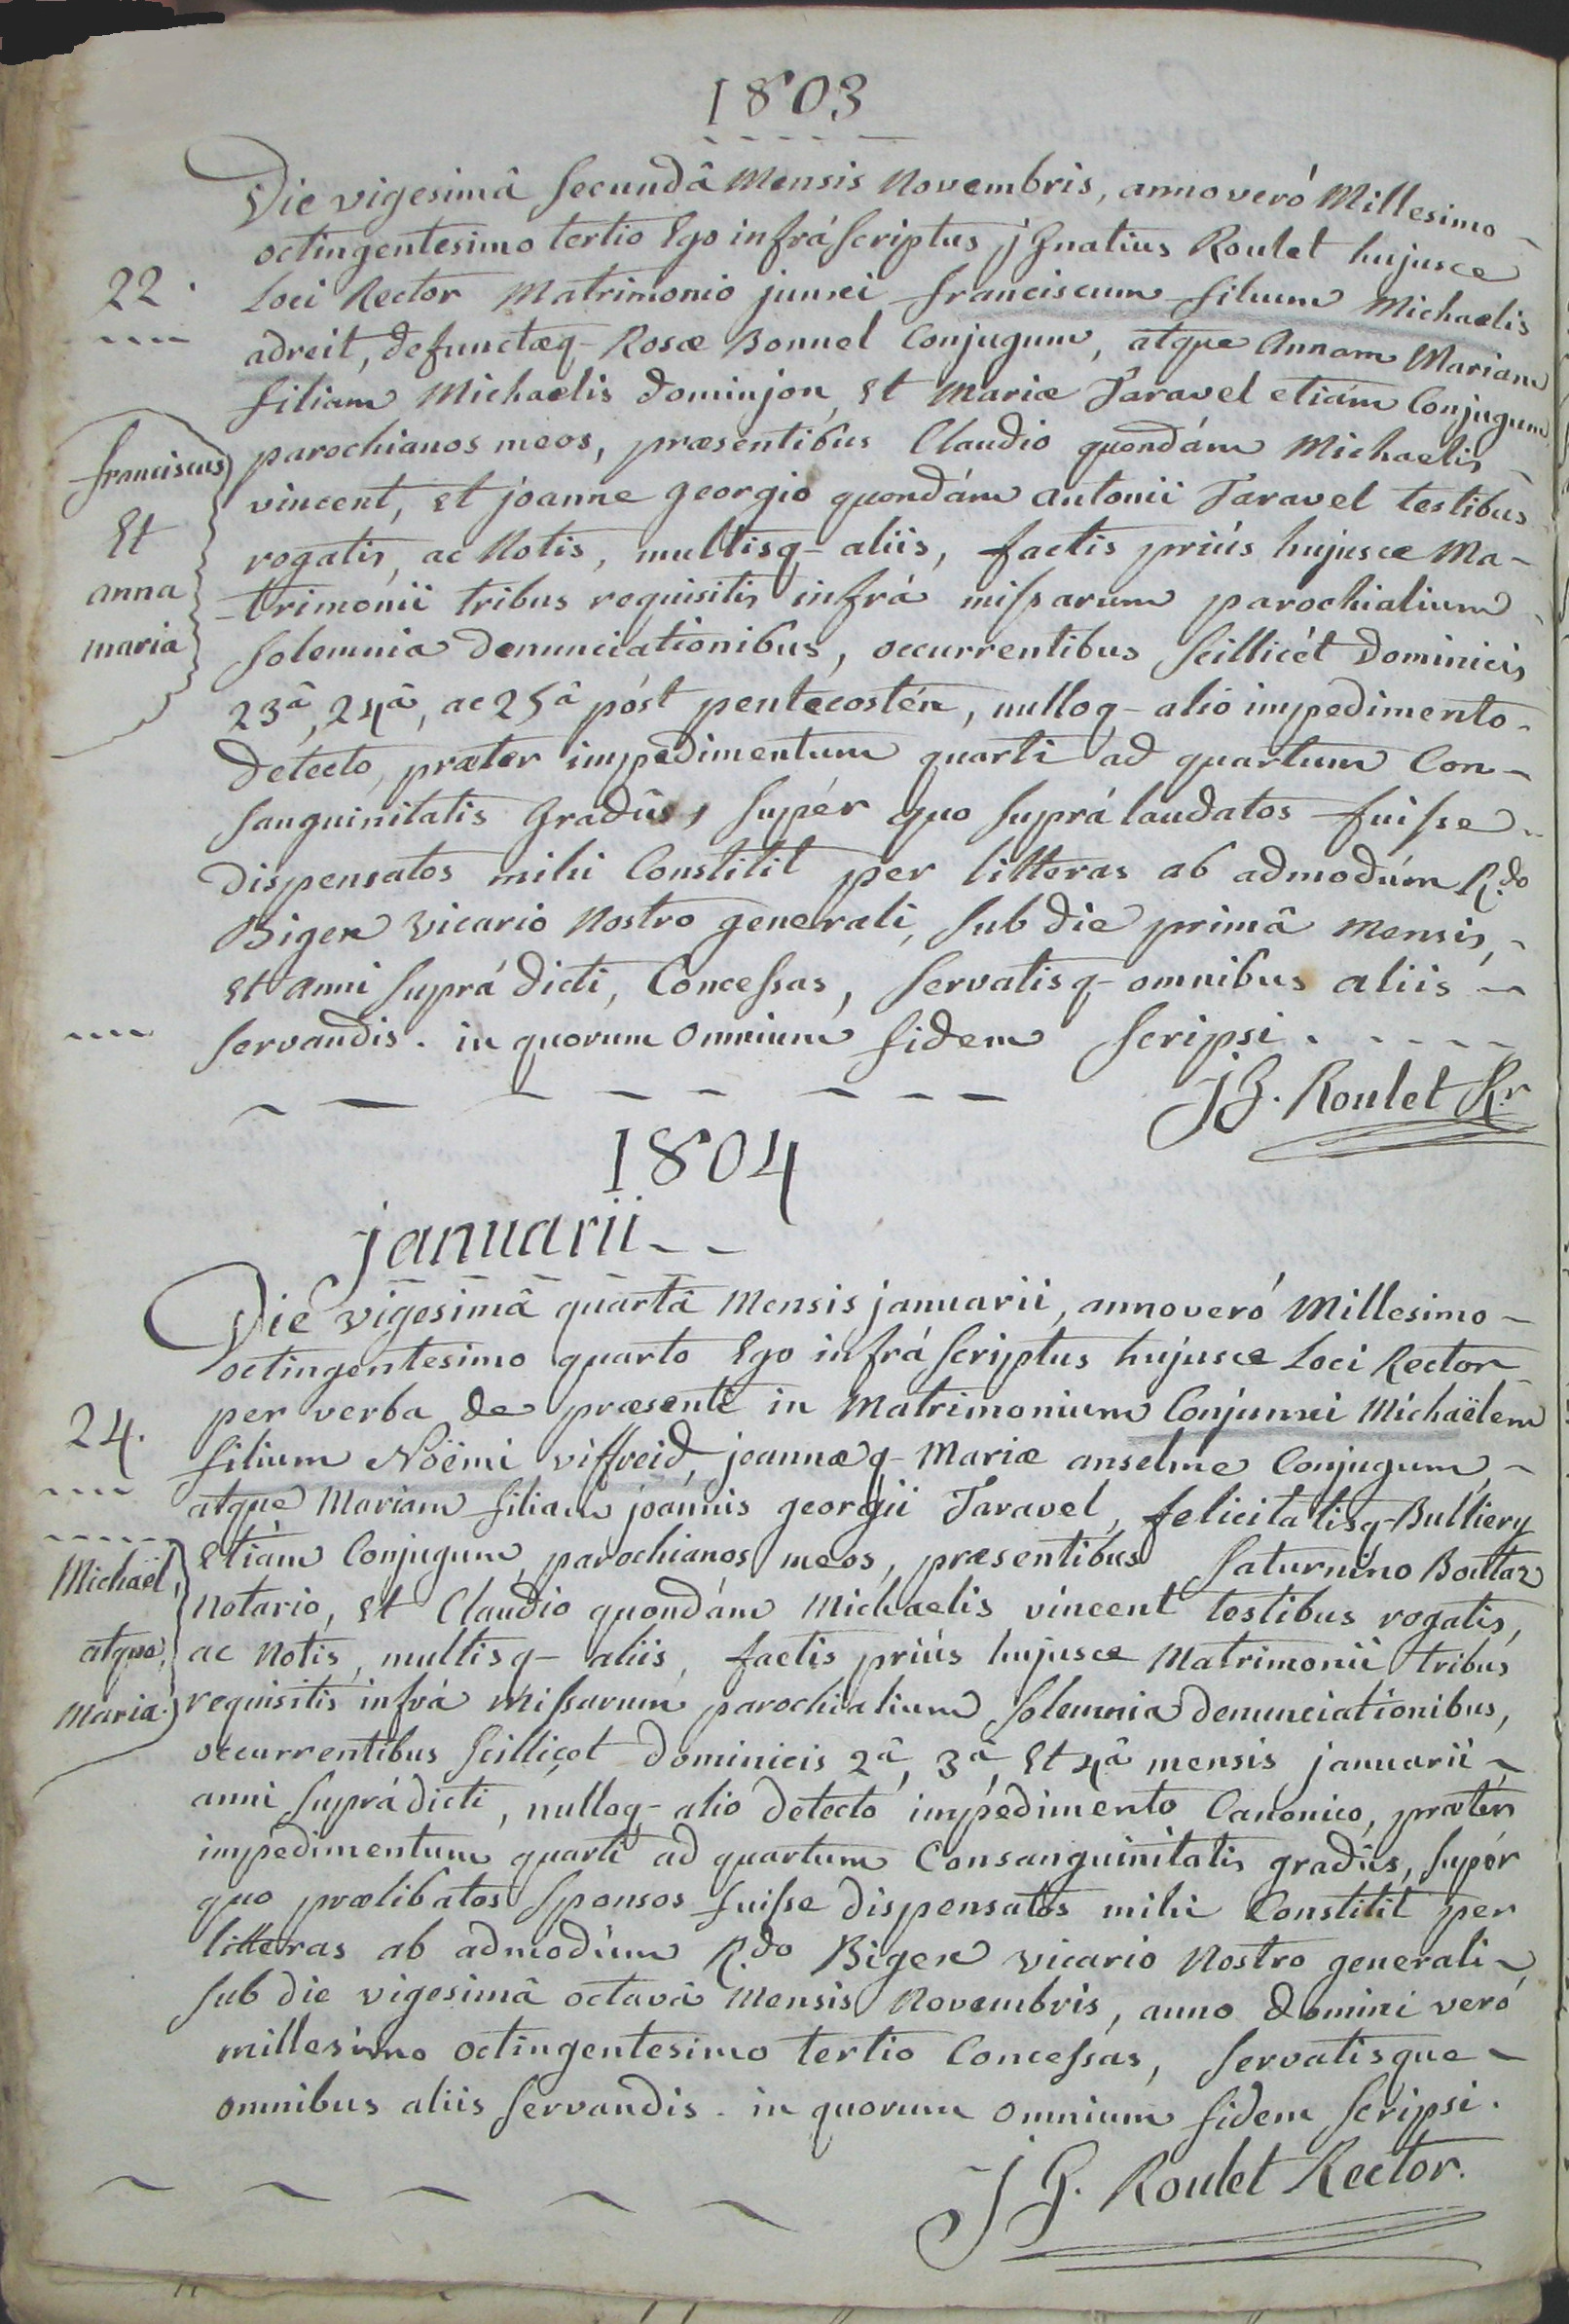 1803
Die vigesimâ secundâ Mensis Novembris, anno veró Millesimo
octingentesimo tertio Ego infráscriptus jGnatius Roulet hujusce
22. Loci Rector Matrimonio junxi franciscum filium Michaelis
adreit, defunctæq- Rosæ Bonnel Conjugum, atque Annam Mariam
filiam Michaelis dominjon, Et Mariæ Taravel etiám Conjugum
parochianos meos, præsentibus Claudio quondám Michaelis
vincent, Et joanne georgio quondám antonii Taravel testibus
rogatis, ac Notis, multisq- aliis, factis priús hujusce Ma-
-trimonii tribus requisitis infrá missarum parochialium
solemnia denunciationibus, occurrentibus scillicét dominicis
23â, 24â, ac 25â póst pentecostén, nulloq- alio impedimento
detecto, præter impedimentum quarti ad quartum Con-
sanguinitatis Gradûs, supér quo suprá laudatos fuisse
dispensatos mihi Constitit per litteras ab admodúm R.do
Bigex vicario Nostro generali, sub die primâ mensis,
Et anni suprá dicti, Concessas, servatisq- omnibus aliis
servandis. in quorum omnium fidem scripsi.
franciscus
Et
anna
maria
JG. Roulet Rr
1804
januarii
Die vigesimâ quartâ Mensis januarii, anno veró Millesimo
octingentesimo quarto Ego infrá scriptus hujusce Loci Rector
per verba de præsenti in Matrimonium Conjunxi Michaëlem
24. filium Nöëmi viffreid, joannæq- Mariæ anselme Conjugum,
atque Mariam filiam joánnis georgii Taravel, felicitatisq- Bulliery
Etiám Conjugum, parochianos meos, præsentibus Saturnino Bouttaz
Notario, Et Claudio quondám Michaelis vincent testibus rogatis,
ac Notis, multisq- aliis, factis priús hujusce Matrimonii tribus
requisitis infrá Missarum parochialium solemnia denunciationibus,
occurrentibus scillicet dominicis 2â, 3â, Et 4â mensis januarii
anni suprá dicti, nulloq- alio detecto impedimento Canonico, prætér
impedimentum quarti ad quartum Consanguinitatis gradûs, supér
quo prælibatos sponsos fuisse dispensatos mihi Constitit per
litteras ab admodúm R.do Bigex vicario Nostro generali
sub die vigesimâ octavâ Mensis Novembris, anno domini veró
millesimo octingentesimo tertio Concessas, servatisque
omnibus aliis servandis. in quorum omnium fidem scripsi.
Michaël,
atque,
Maria.
J G. Roulet Rector.